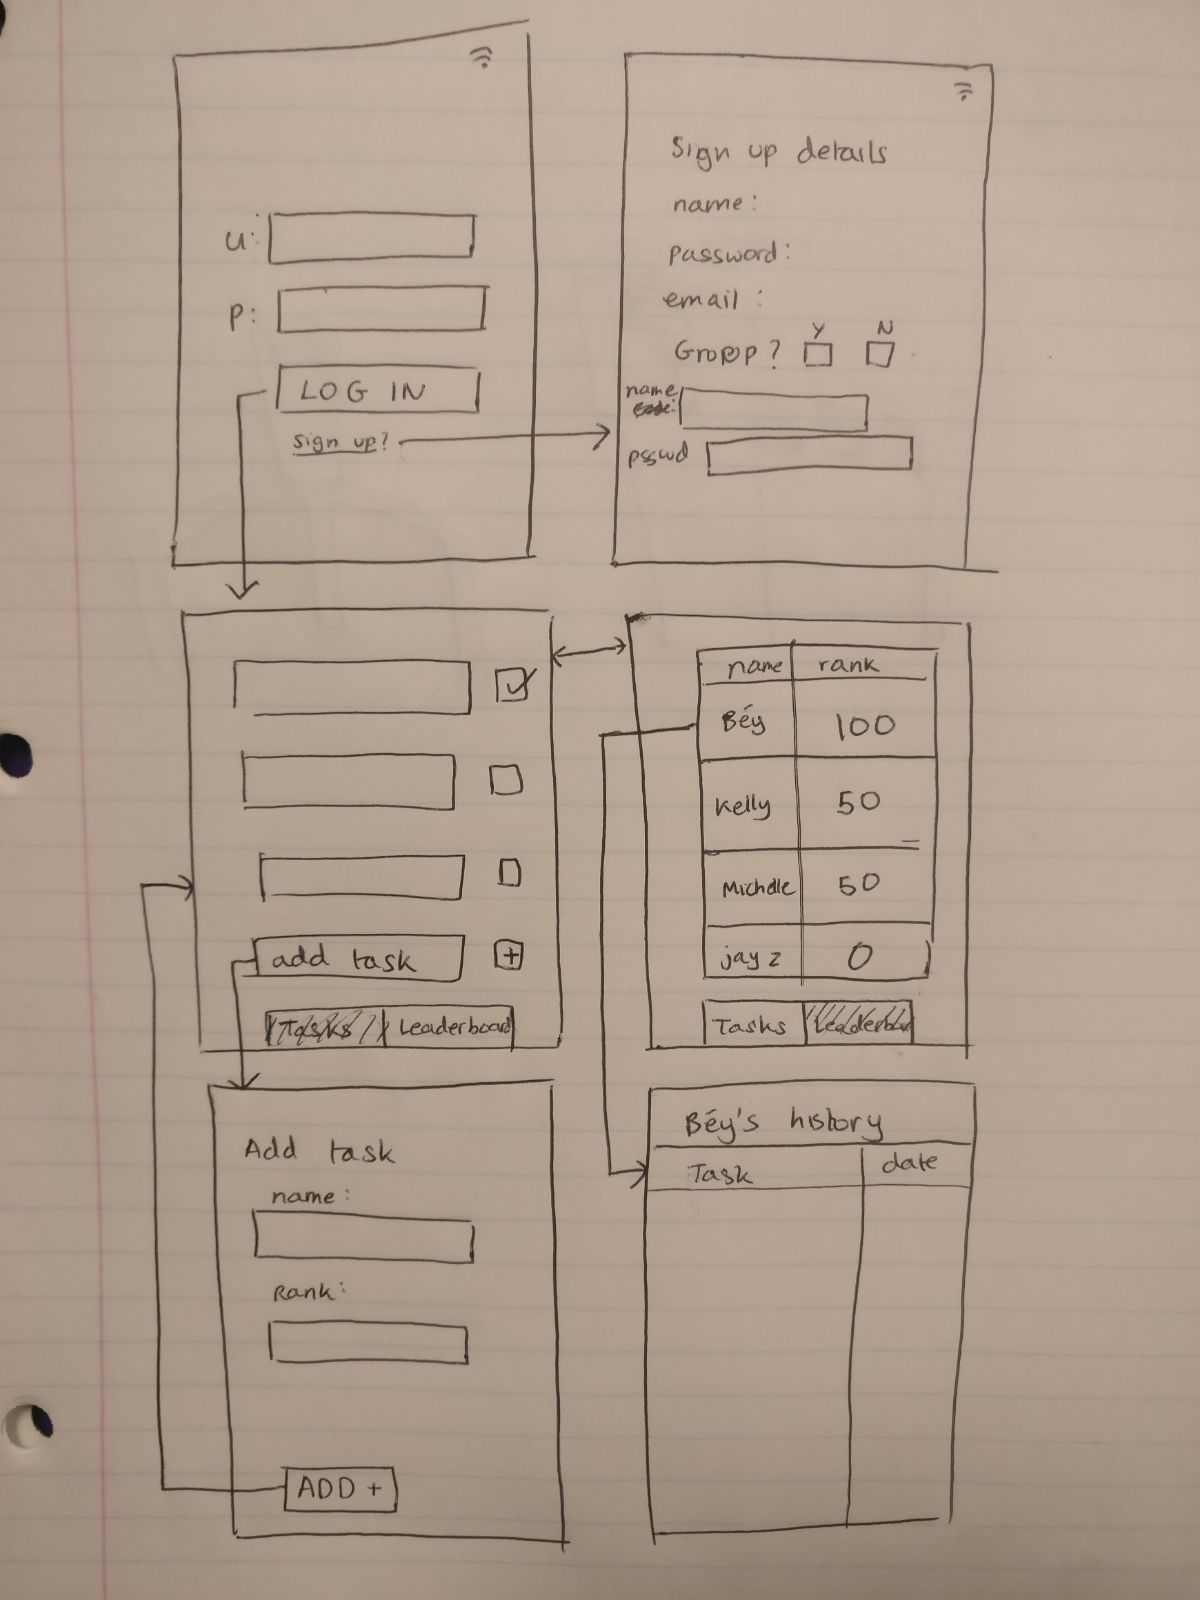 u:
p:
LOG IN
sign up?
Sign up details
name:
password:
email :
Group?
Y N
name
psswd
add task +
Tasks Leaderboard
name rank
Béy 100
Kelly 50
Michelle 50
jay z 0
Tasks Leaderboa
Add task
name:
Rank:
ADD +
Béy's history
Task date